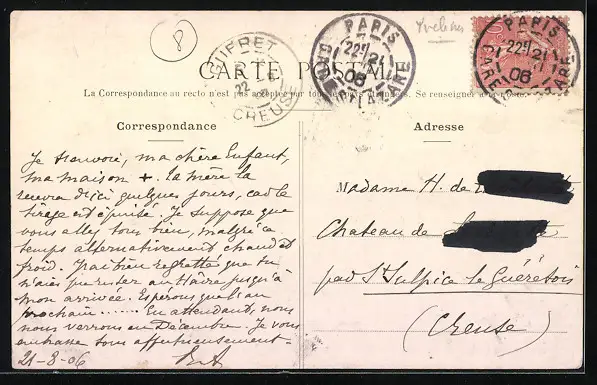 8
Yvelines
CARTE POSTALE
La Correspondance au recto n'est pas acceptée par tous les pays étrangers. Se renseigner à la Poste.
PARIS
22 21
06
GARE ST LAZARE
PARIS
22 21
06
GARE ST LAZARE
22
CREUSE
Correspondance
Je t'envoie, ma chère Enfant,
ma maison +. ta mère la
recevra d'ici quelques jours, car le
tirage est épuisé. Je suppose que
vous allez tous bien, malgré ce
temps alternativement chaud et
froid. J'ai bien regretté que tu
n'aies pu rester au Hâvre jusqu'à
mon arrivée. Espérons que l'an
prochain ...... En attendant, nous
nous verrons en Décembre. Je vous
embrasse tous affectueusement
21-8-06
Adresse
Madame H. de
Chateau de
par St Sulpice le Guéretois
(Creuse)